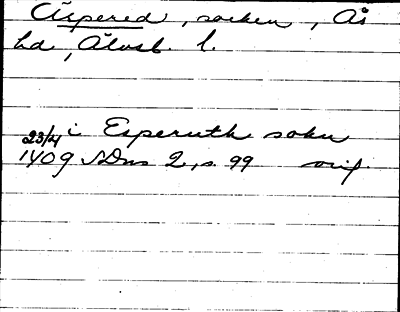 Äspered, socken, Ås
hd, Älvsb. l.
23/4 i Esperuth sokn
1409 SDns 2, s. 99 orig.